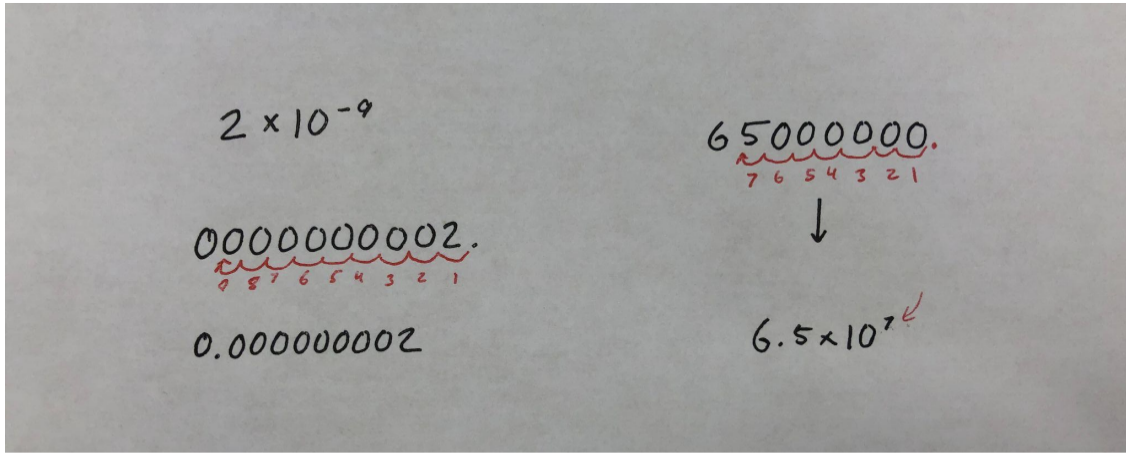 2 × 10⁻⁹
0000000002.
9 8 7 6 5 4 3 2 1
0.000000002
65000000.
7 6 5 4 3 2 1
↓
6.5 × 10⁷